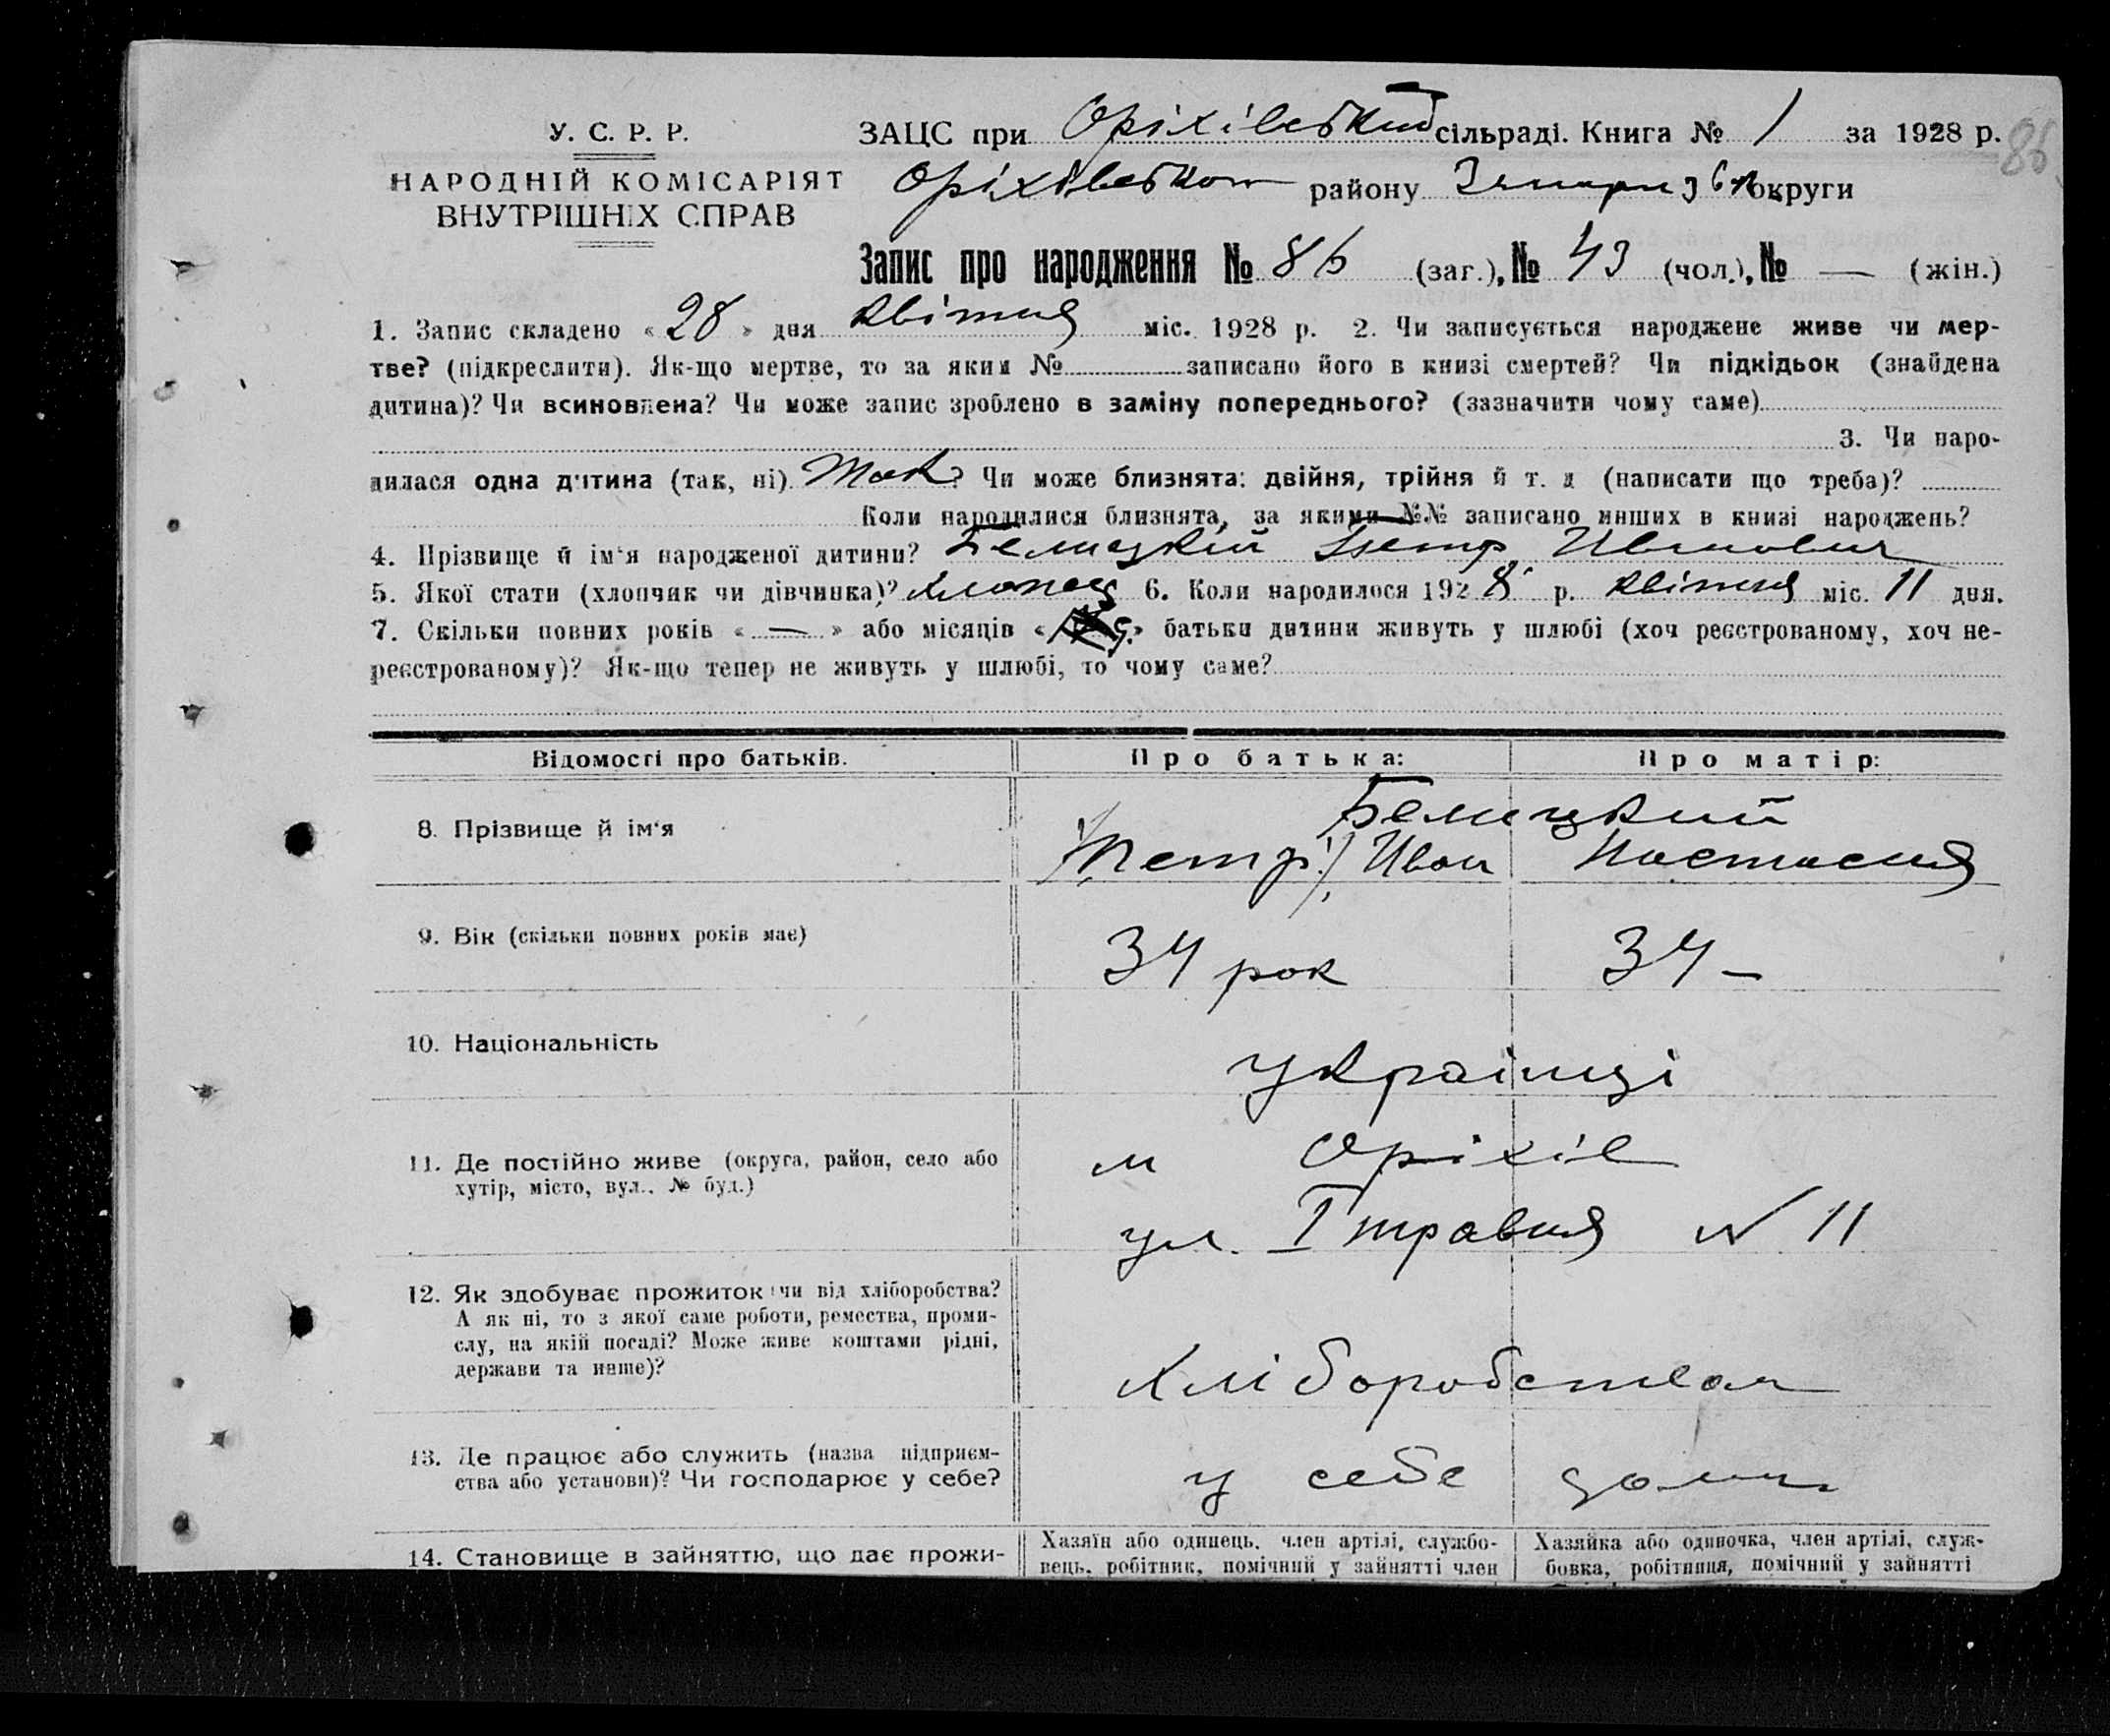 У. С. Р. Р.
НАРОДНІЙ КОМІСАРІЯТ
ВНУТРІШНІХ СПРАВ
ЗАЦС при Оріхівський сільраді. Книга № 1 за 1928 р.
86
Оріхівського району округи
Запис про народження № 86 (заг.), № 43 (чол.), № — (жін.)
1. Запис складено «28» дня квітня міс. 1928 р. 2. Чи записується народжене живе чи мер-
тве? (підкреслити). Як-що мертве, то за яким № записано його в книзі смертей? Чи підкідьок (знайдена
дитина)? Чи всиновлена? Чи може запис зроблено в заміну попереднього? (зазначити чому саме)
3. Чи наро-
дилася одна дитина (так, ні) Так? Чи може близнята: двійня, трійня й т. д (написати що треба)?
Коли народилися близнята, за якими №№ записано инших в книзі народжень?
4. Прізвище й ім‘я народженої дитини? Белицкий Петр Иванович
5. Якої стати (хлопчик чи дівчинка)? хлопец 6. Коли народилося 1928 р. квітня міс. 11 дня.
7. Скільки повних років «—» або місяців « » батьки дитини живуть у шлюбі (хоч реєстрованому, хоч не-
реєстрованому)? Як-що тепер не живуть у шлюбі, то чому саме?
Відомості про батьків. Про батька: Про матір:
8. Прізвище й ім‘я
Белицкий
(Петр) Иван Настасия
9. Вік (скільки повних років має) 34 рок 34 —
10. Національність українці
11. Де постійно живе (округа, район, село або
хутір, місто, вул., № буд.)
м Оріхів
ул. I травня N 11
12. Як здобуває прожиток чи від хліборобства?
А як ні, то з якої саме роботи, ремества, проми-
слу, на якій посаді? Може живе коштами рідні,
держави та инше)?
хліборобством
13. Де працює або служить (назва підприєм-
ства або установи)? Чи господарює у себе?
у себе дома
14. Становище в зайняттю, що дає прожи-
Хазяїн або одинець, член артілі, службо-
вець, робітник, помічний у зайнятті член
Хазяйка або одиночка, член артілі, служ-
бовка, робітниця, помічний у зайнятті